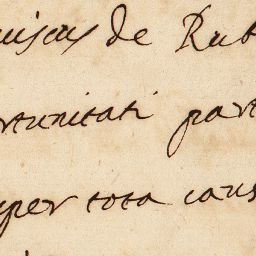 de Rub
rtunitati part
per tota caus